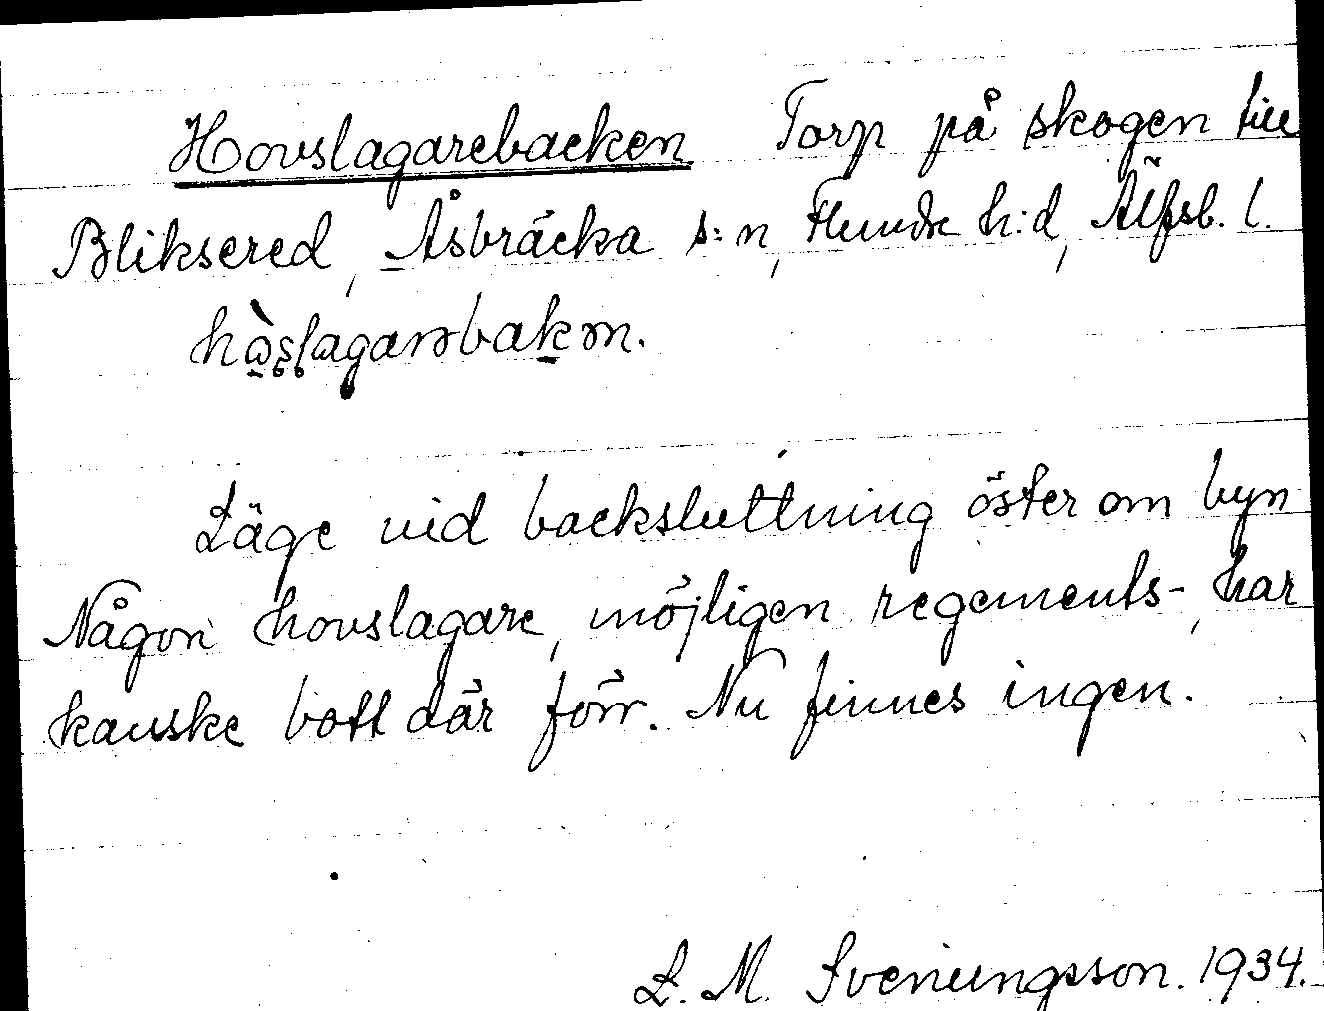 Hovslagarebacken Torp på skogen till
Bliksered, Åsbräcka s:n, Flundre h:d, Älfsb. l.
Läge vid backsluttning öster om byn
Någon hovslagare, möjligen regements-, har
kanske bott där förr. Nu finnes ingen.
L. M. Svenungsson. 1934.